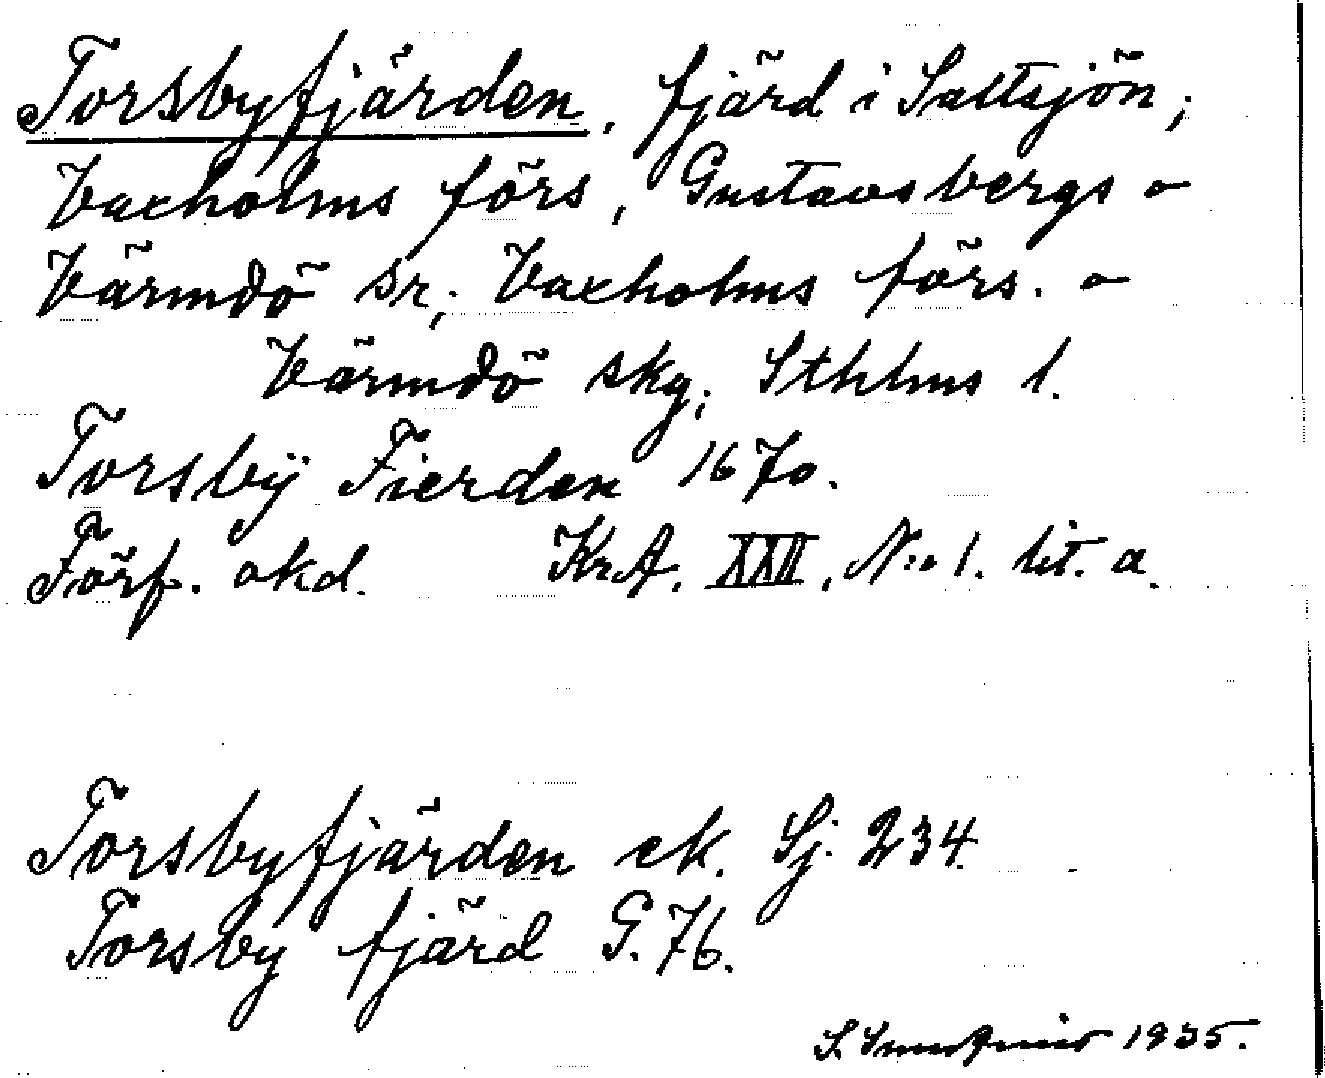 Torsbyfjärden, fjärd i Saltsjön;
Vaxholms förs, Gustavsbergs o
Värmdö sr; Vaxholms förs. o
Värmdö skg; Sthlms l.
Torsbÿ Fierden 1670.
Förf. okd. Kr.A. XXII, N:o 1. lit. a.
Torsbyfjärden ek. Sj. 234.
Torsby fjärd G. 76.
S. 1935.